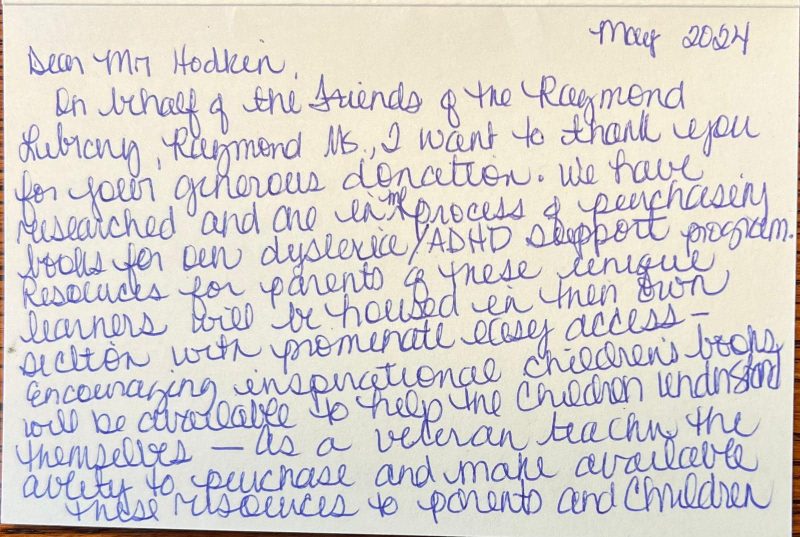 May 2024
Dear Mr Hodkin,
On behalf of the Friends of the Raymond
Library, Raymond Ms., I want to thank you
for your generous donation. We have
researched and are in the process of purchasing
books for our dyslexice/ADHD support program.
Resources for parents of these unique
learners will be housed in their own
section with promenate easy access –
Encouraging inspirational children's books
will be available to help the children understand
themselves – As a veteran teacher the
ability to purchase and make available
these resources to parents and children